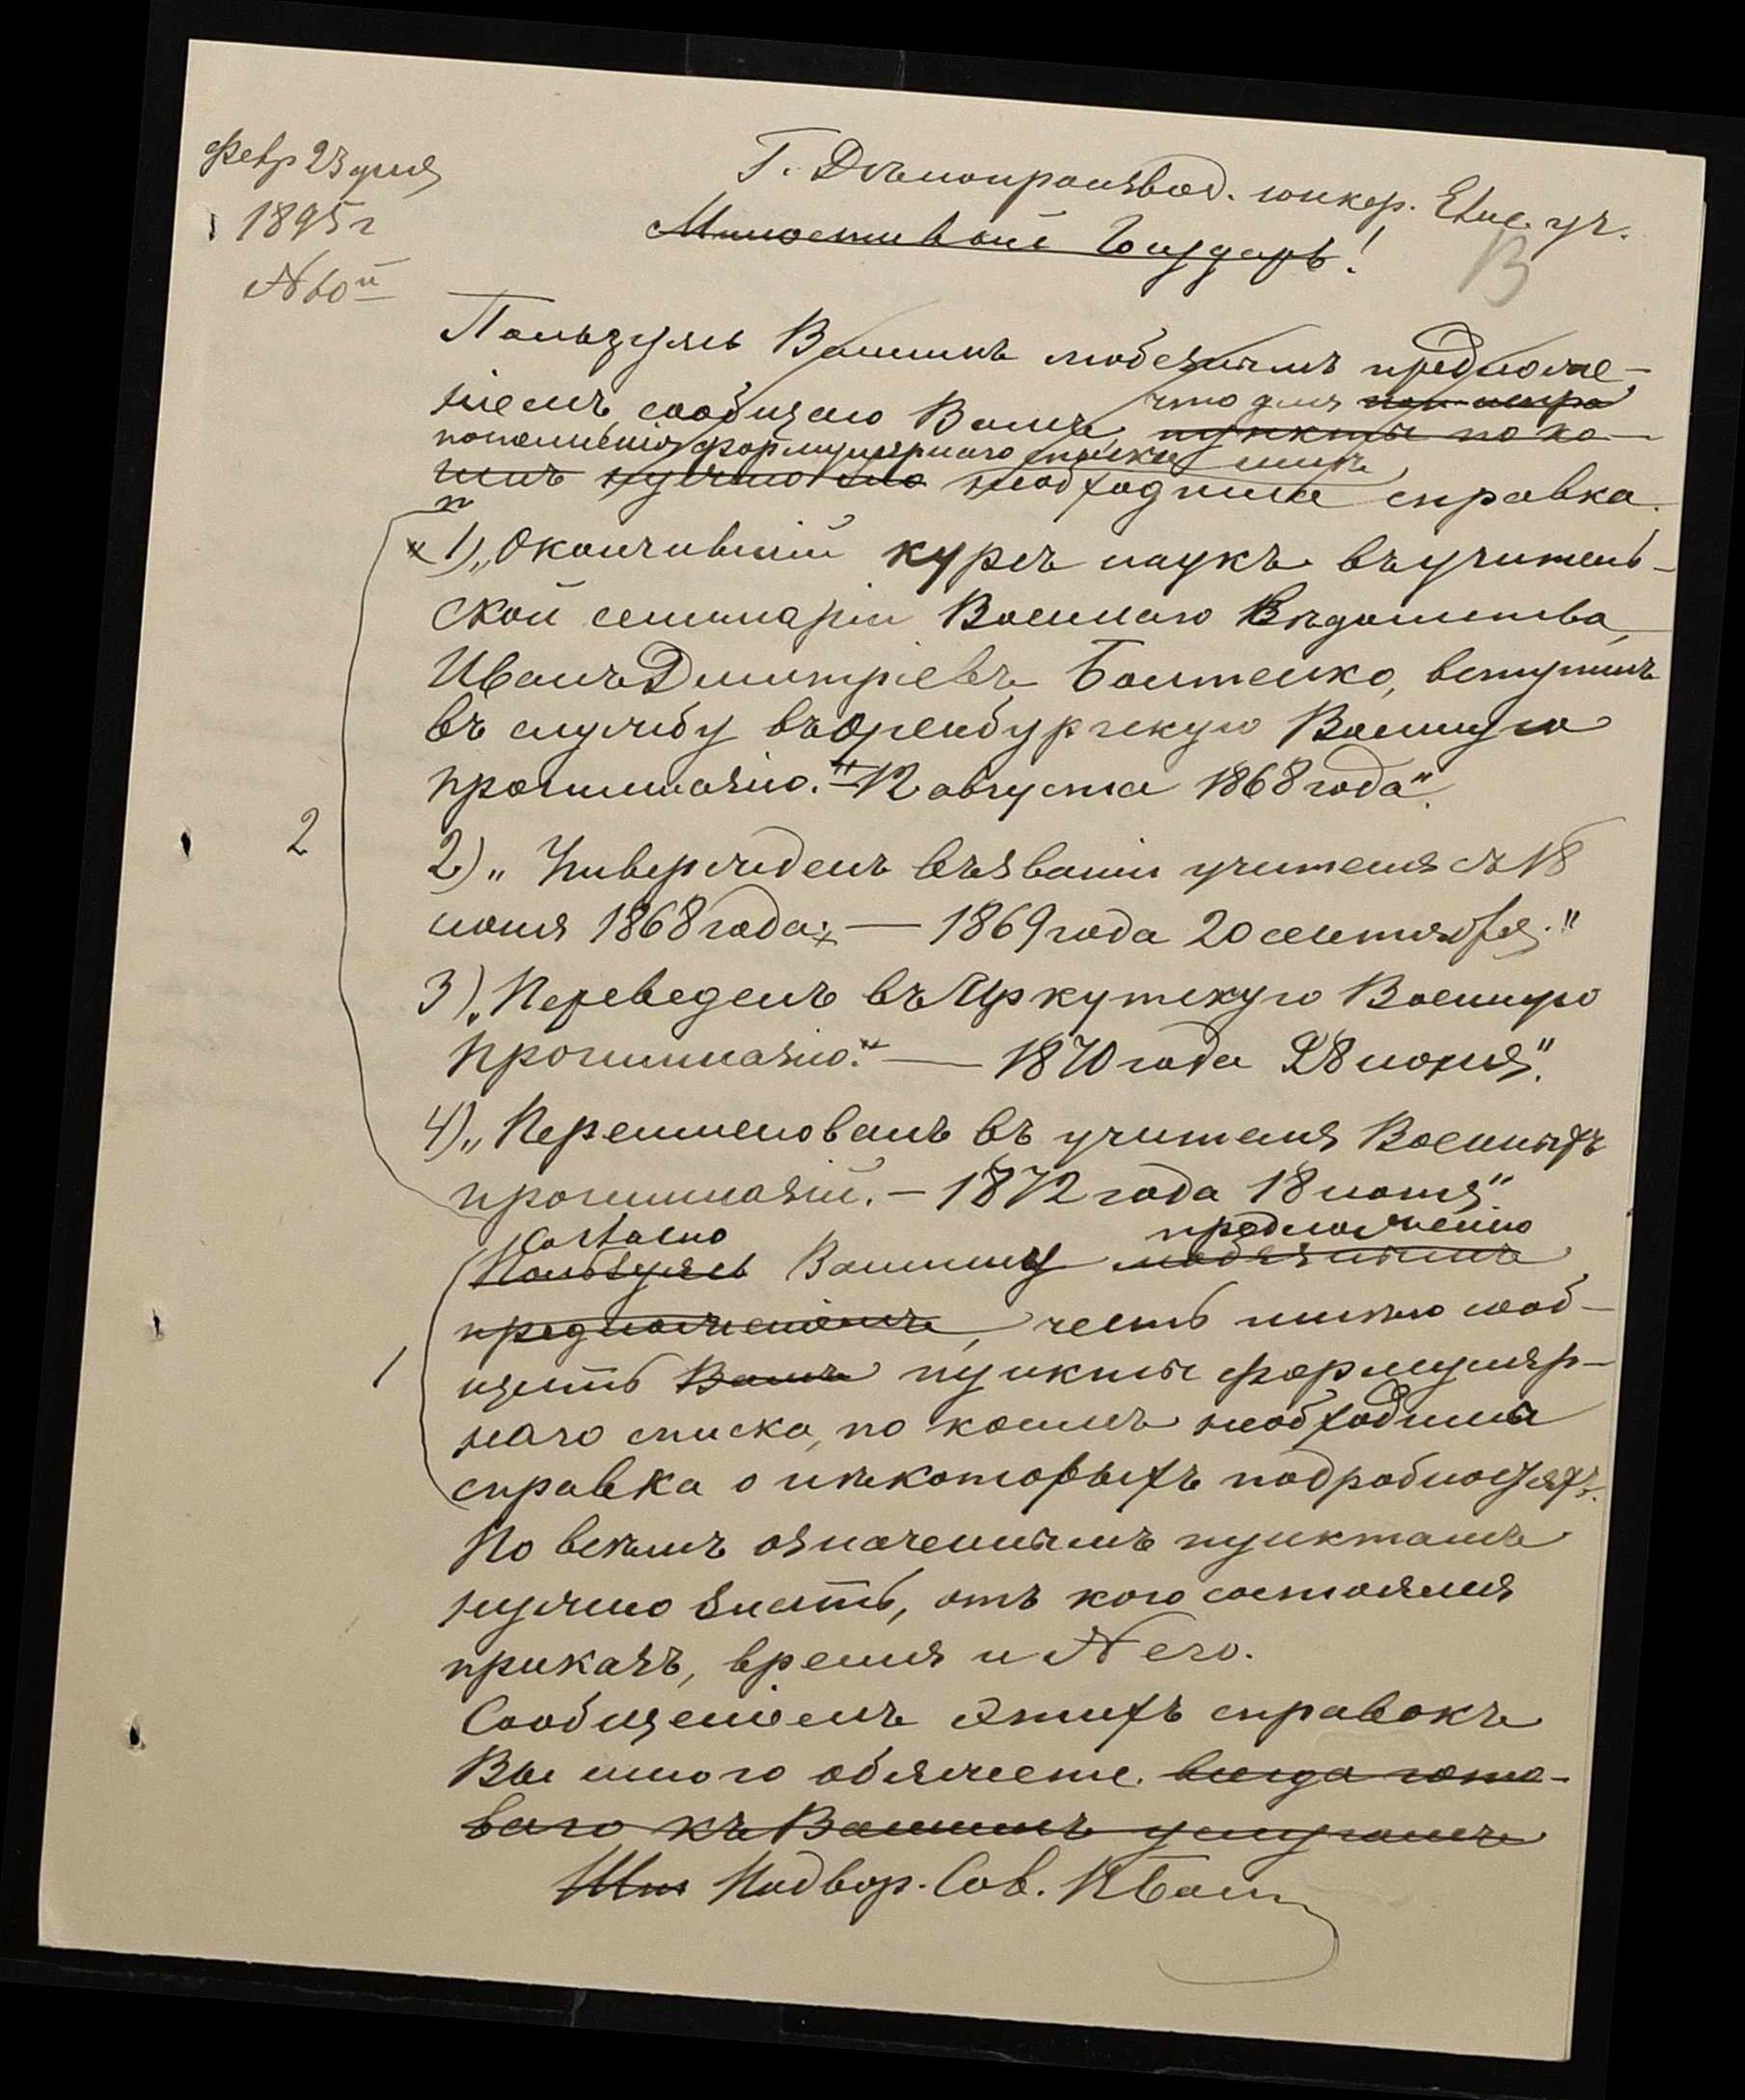 Февр 23 дня
1895 г
№ 60й
Г. Дѣлопроизвод. юнкер. Елис. уч.
Милостивый Государь!
В
Пользуясь Вашимъ любезнымъ предложе-
ніемъ, сообщаю Вамъ, что для
пункты по ко-
пополненія формулярнаго списка
имъ нужно необходима справка.
1) „Окончившій курсъ наукъ въ учитель-
ской семинаріи Военнаго Вѣдомства,
Иванъ ДмитріевъБолтенко, вступилъ
въ службу въ Оренбургскую Военную
прогимназію." — 12 августа 1868 года".
2
2) „Утвержденъ въ званіи учителя съ 18
июня 1868 года; — 1869 года 20 сентября."
3) „Переведенъ въ Иркутскую Военную
прогимназію." — 1870 года 28 июня".
4) „Переименованъ въ учителя Военныхъ
прогимназій. — 1872 года 18 июня"
Согласно предложенію
Пользуясь Вашему любезнымъ
предложеніемъ, честь имѣю сооб-
1
щить Вамъ пункты формуляр-
наго списка, по коимъ необходима
справка о нѣкоторыхъ подробностяхъ.
По всѣмъ означеннымъ пунктамъ
нужно знать, отъ кого состоялся
приказъ, время и № его.
Сообщеніемъ этихъ справокъ
Вы много обяжете всегда гото-
ваго къ Вашимъ услугамъ
Надвор. Сов. И Болт